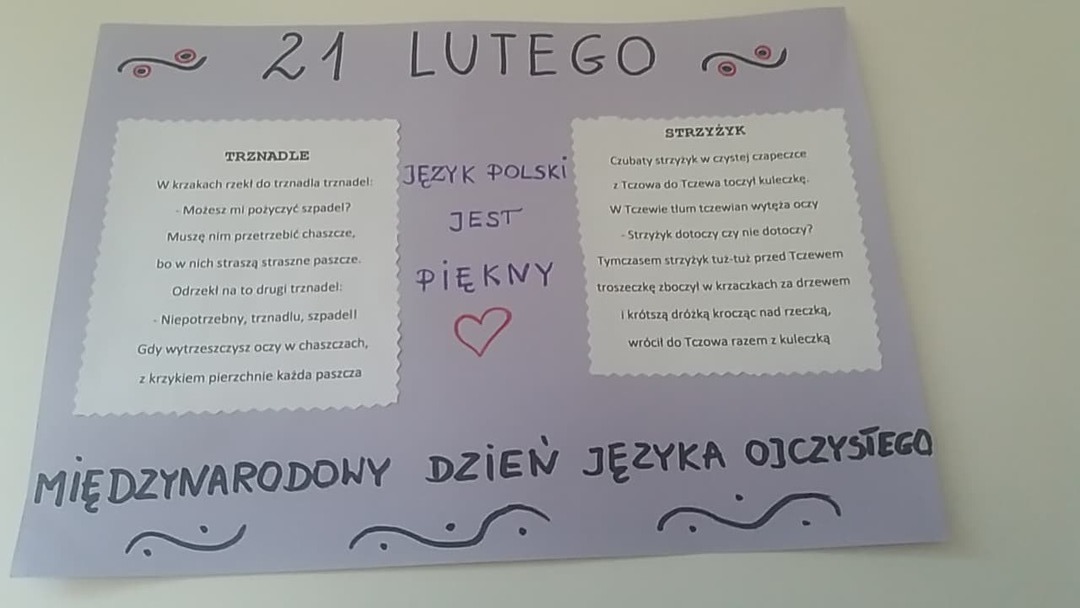 21 LUTEGO
TRZNADLE
W krzakach rzekł do trznadla trznadel:
- Możesz mi pożyczyć szpadel?
Muszę nim przetrzebić chaszcze,
bo w nich straszą straszne paszcze.
Odrzekł na to drugi trznadel:
- Niepotrzebny, trznadlu, szpadel!
Gdy wytrzeszczysz oczy w chaszczach,
z krzykiem pierzchnie każda paszcza
JĘZYK POLSKI
JEST
PIĘKNY
STRZYŻYK
Czubaty strzyżyk w czystej czapeczce
z Tczowa do Tczewa toczył kuleczkę.
W Tczewie tłum tczewian wytęża oczy
- Strzyżyk dotoczy czy nie dotoczy?
Tymczasem strzyżyk tuż-tuż przed Tczewem
troszeczkę zboczył w krzaczkach za drzewem
i krótszą dróżką krocząc nad rzeczką,
wrócił do Tczowa razem z kuleczką
MIĘDZYNARODOWY DZIEŃ JĘZYKA OJCZYSTEGO